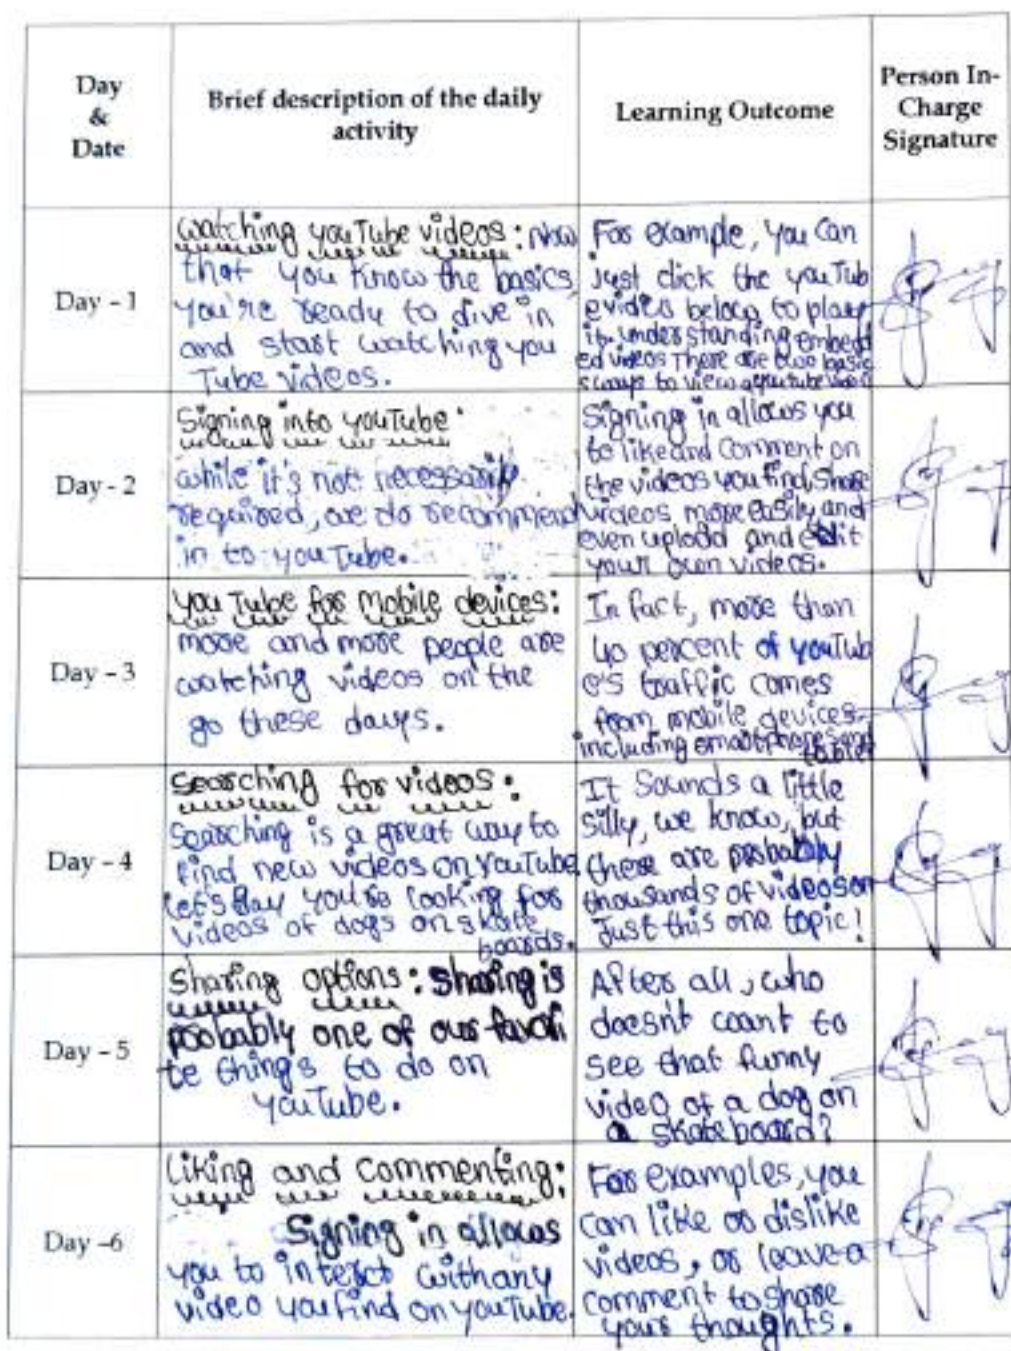 Day
&
Date
Brief description of the daily
activity
Learning Outcome
Person In-
Charge
Signature
Day - 1
Watching YouTube videos: Now
that you know the basics,
you're ready to dive in
and start watching you
Tube videos.
For example, you can
just click the youTub
evideo below to play
it. understanding embedd
ed videos There are two basic
sways to view a youtube video
Day - 2
Signing into youTube:
while it's not necessarily
required, we do recommend
in to youTube.
Signing in allows you
to like and comment on
the videos you find, share
videos more easily and
even upload and edit
your own videos.
Day - 3
you Tube for mobile devices:
more and more people are
watching videos on the
go these days.
In fact, more than
40 percent of youTub
e's traffic comes
from mobile devices,
including smartphones and
tablet
Day - 4
Searching for videos:
Searching is a great way to
find new videos on YouTube
let's say you're looking for
videos of dogs on skate
boards.
It Sounds a little
silly, we know, but
there are probably
thousands of videos on
Just this one topic!
Day - 5
Sharing options: Sharing is
probably one of our favori
te thing's to do on
youTube.
After all, who
doesn't want to
see that funny
video of a dog on
a skateboard?
Day -6
Liking and Commenting:
Signing in allows
you to interct with any
video you find on youTube.
For examples, you
can like or dislike
videos, or leave a
comment to share
your thoughts.